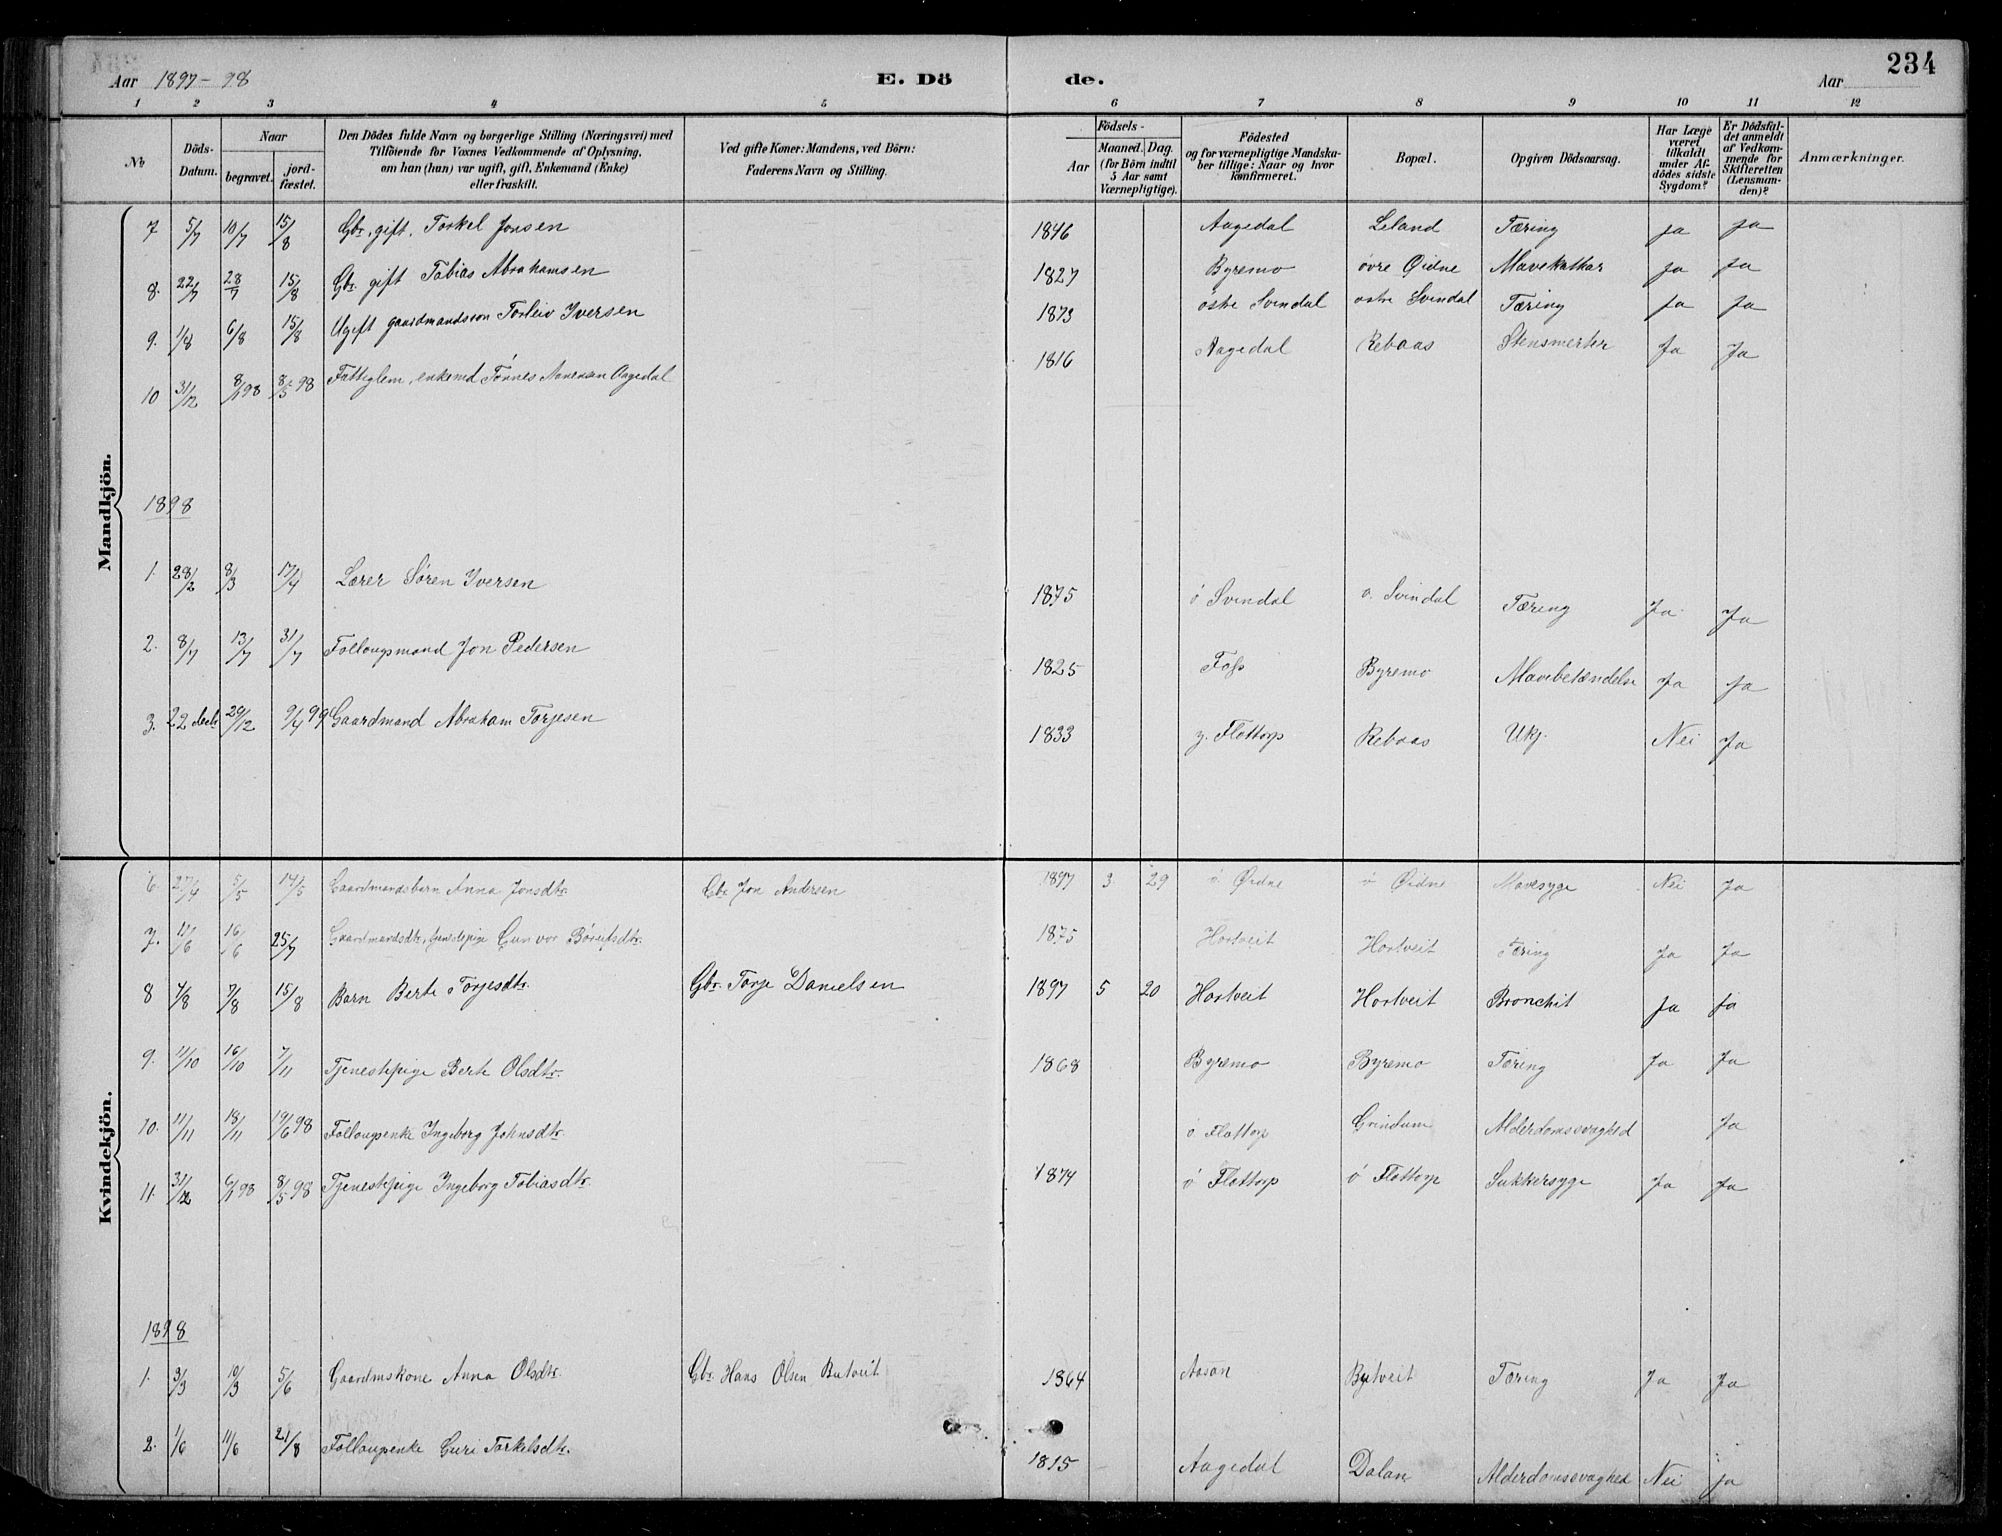 234
Aar 1897-98 E. Dö de. Aar
1 2 3 4 5 6 7 8 9 10 11 12
No
Döds-Datum.
Naar
begravet.
jordfæstet.
Den Dödes fulde Navn og borgerlige Stilling (Næringsvei) med
Tilföiende for Voxnes Vedkommende af Oplysning,
om han (hun) var ugift, gift, Enkemand (Enke)
eller fraskilt.
Ved gifte Koner: Mandens, ved Börn:
Faderens Navn og Stilling.
Födsels-
Aar
Maaned. Dag.
(for Börn indtil
5 Aar samt
Værnepligtige).
Födested
og for værnepligtige Mandskaber tillige: Naar og hvor
konfirmeret.
Bopæl.
Opgiven Dödsaarsag.
Har Læge
været
tilkaldt
under Afdödes sidste
Sygdom?
Er Dödsfaldet anmeldt
af Vedkommende for
Skifteretten
(Lensmanden)?
Anmærkninger.
Mandkjön.
7 5/7 10/7 15/8 Gbr. gift. Torkel Jonsen 1846 Aagedal Leland Tæring ja ja
8. 22/7 28/7 15/8 Gbr. gift Tobias Abrahamsen 1827 Byremo övre Øidne Mavekatar ja ja
9. 1/8 6/8 15/8 Ugift gaardmandssön Torleiv Iversen 1873 östre Svindal östre Svindal Tæring ja ja
10 31/12 8/1 98 8/5 98 Fattiglem, enkemd Tönnes Aanensen Aagedal 1816 Aagedal Rebaas Stensmerter Ja Ja
1898
1. 28/2 8/3 17/4 Lærer Sören Iversen 1875 ö Svindal ö. Svindal Tæring Ja Ja
2. 8/7 13/7 31/7 Follougsmand Jon Pedersen 1825 Foss Byremo Mavebetændelse Ja Ja
3. 22 decbr 29/12 9/4 99 Gaardmand Abraham Torjesen 1833 y. Flottorp Rebaas Ukj. Nei Ja
Kvindekjön.
6. 27/4 5/5 14/5 Gaardmandsbarn Anna Jonsdtr. Gbr. Jon Andersen 1897 3 29 ö Øidne ö Øidne Mavesyge Nei Ja
7. 11/6 16/6 25/7 Gaardmandsdtr, tjenestepige Gunvor Börufsdtr. 1875 Hortveit Hortveit Tæring Ja Ja
8 4/8 7/8 15/8 Barn Berte Torjesdtr. Gbr. Torje Danielsen 1897 5 20 Hortveit Hortveit Bronchit Ja Ja
9. 11/10 16/10 7/11 Tjenestepige Berte Olsdtr. 1868 Byremo Byremo Tæring Ja Ja
10. 11/11 18/11 19/6 98 Folloupenke Ingeborg Johnsdtr. ö Flottorp Grindum Alderdomssvaghed Ja
11. 31/12 6/1 98 8/5 98 Tjenestepige Ingeborg Tobiasdtr. 1874 ö Flottorp ö Flottorp Sukkersyge Ja Ja
1898
1. 3/3 10/3 5/6 Gaardmskone Anna Olsdtr. Gbr. Hans Olsen Butveit 1864 Aasan Bytveit Tæring Ja Ja
2. 1/6 11/6 21/8 Folloupenke Guri Torkelsdtr. 1815 Aagedal Dalan Alderdomssvaghed Nei ja